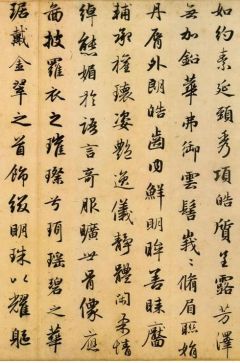 如約素延頸秀項皓質呈露芳澤
無加鉛華弗御雲髻峩〻脩眉聯娟
丹脣外朗皓齒内鮮明眸善睞靨
輔承權瓌姿艷逸儀靜體閑柔情
綽態媚於語言奇服曠世骨像應
圖披羅衣之璀璨兮珥瑤碧之華
琚戴金翠之首飾綴明珠以耀軀